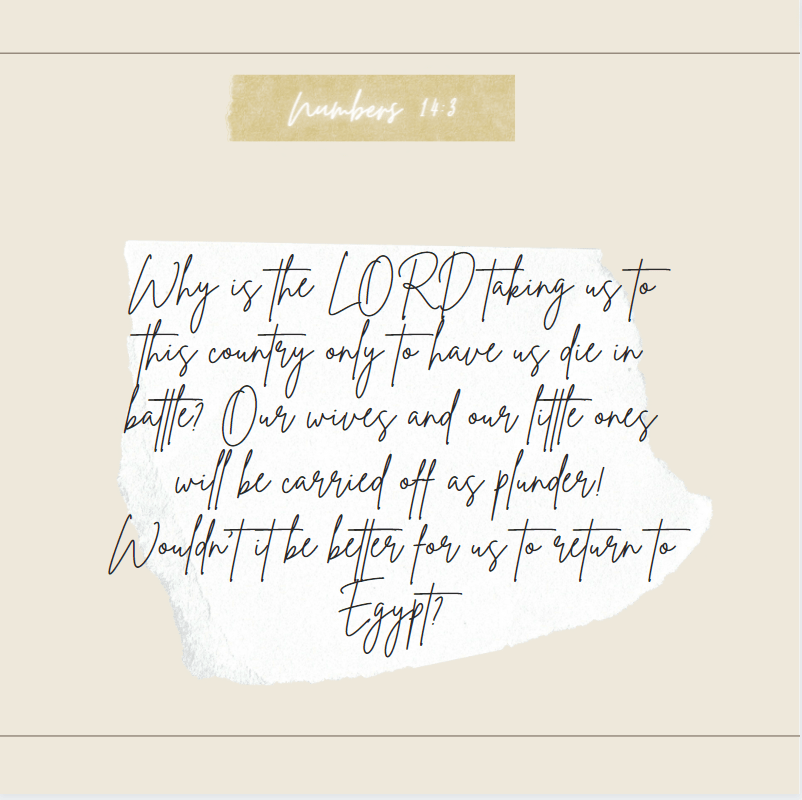 Numbers 14:3
Why is the LORD taking us to
this country only to have us die in
battle? Our wives and our little ones
will be carried off as plunder!
Wouldn't it be better for us to return to
Egypt?